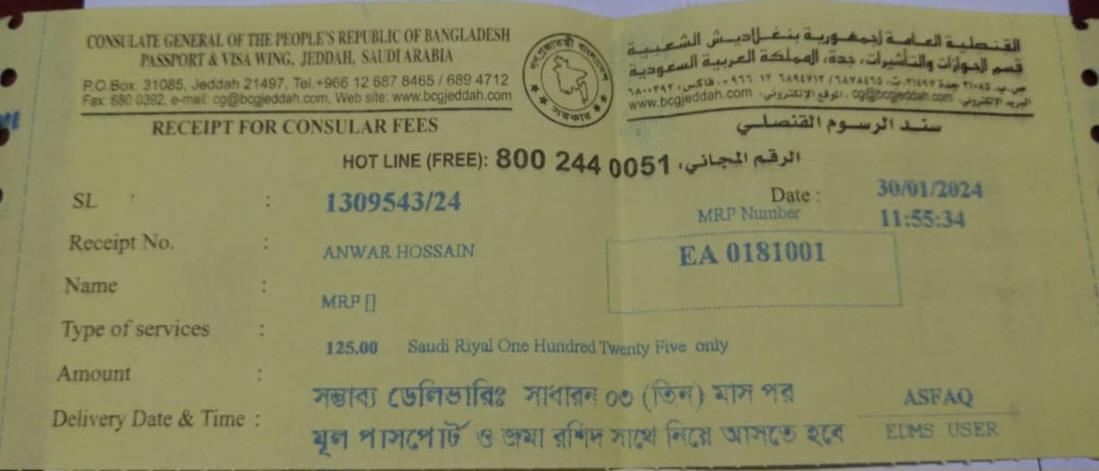 CONSULATE GENERAL OF THE PEOPLE'S REPUBLIC OF BANGLADESH
PASSPORT & VISA WING, JEDDAH, SAUDI ARABIA
P.O.Box. 31085, Jeddah 21497, Tel.+966 12 687 8465 / 689 4712
Fax: 680 0392, e-mail: cg@bcgjeddah.com, Web site: www.bcgjeddah.com
القنصلية العامة لجمهورية بنغلاديش الشعبية
قسم الجوازات والتأشيرات، جدة، المملكة العربية السعودية
ص.ب. ٣١٠٨٥ جدة ٢١٤٩٧، ت: ٦٨٧٨٤٦٥/ ٦٨٩٤٧١٢ ١٢ ٩٦٦+ فاكس: ٦٨٠٠٣٩٢
البريد الإلكتروني: cg@bcgjeddah.com، موقع الإلكتروني: www.bcgjeddah.com
গণপ্রজাতন্ত্রী বাংলাদেশ
সরকার
RECEIPT FOR CONSULAR FEES
سند الرسوم القنصلي
HOT LINE (FREE): 800 244 0051 الرقم المجاني:
SL : 1309543/24 Date : 30/01/2024
MRP Number 11:55:34
Receipt No. : ANWAR HOSSAIN EA 0181001
Name : MRP []
Type of services : 125.00 Saudi Riyal One Hundred Twenty Five only
Amount : সম্ভাব্য ডেলিভারিঃ সাধারন ০৩ (তিন) মাস পর ASFAQ
Delivery Date & Time : মূল পাসপোর্ট ও জমা রশিদ সাথে নিয়ে আসতে হবে EDMS USER